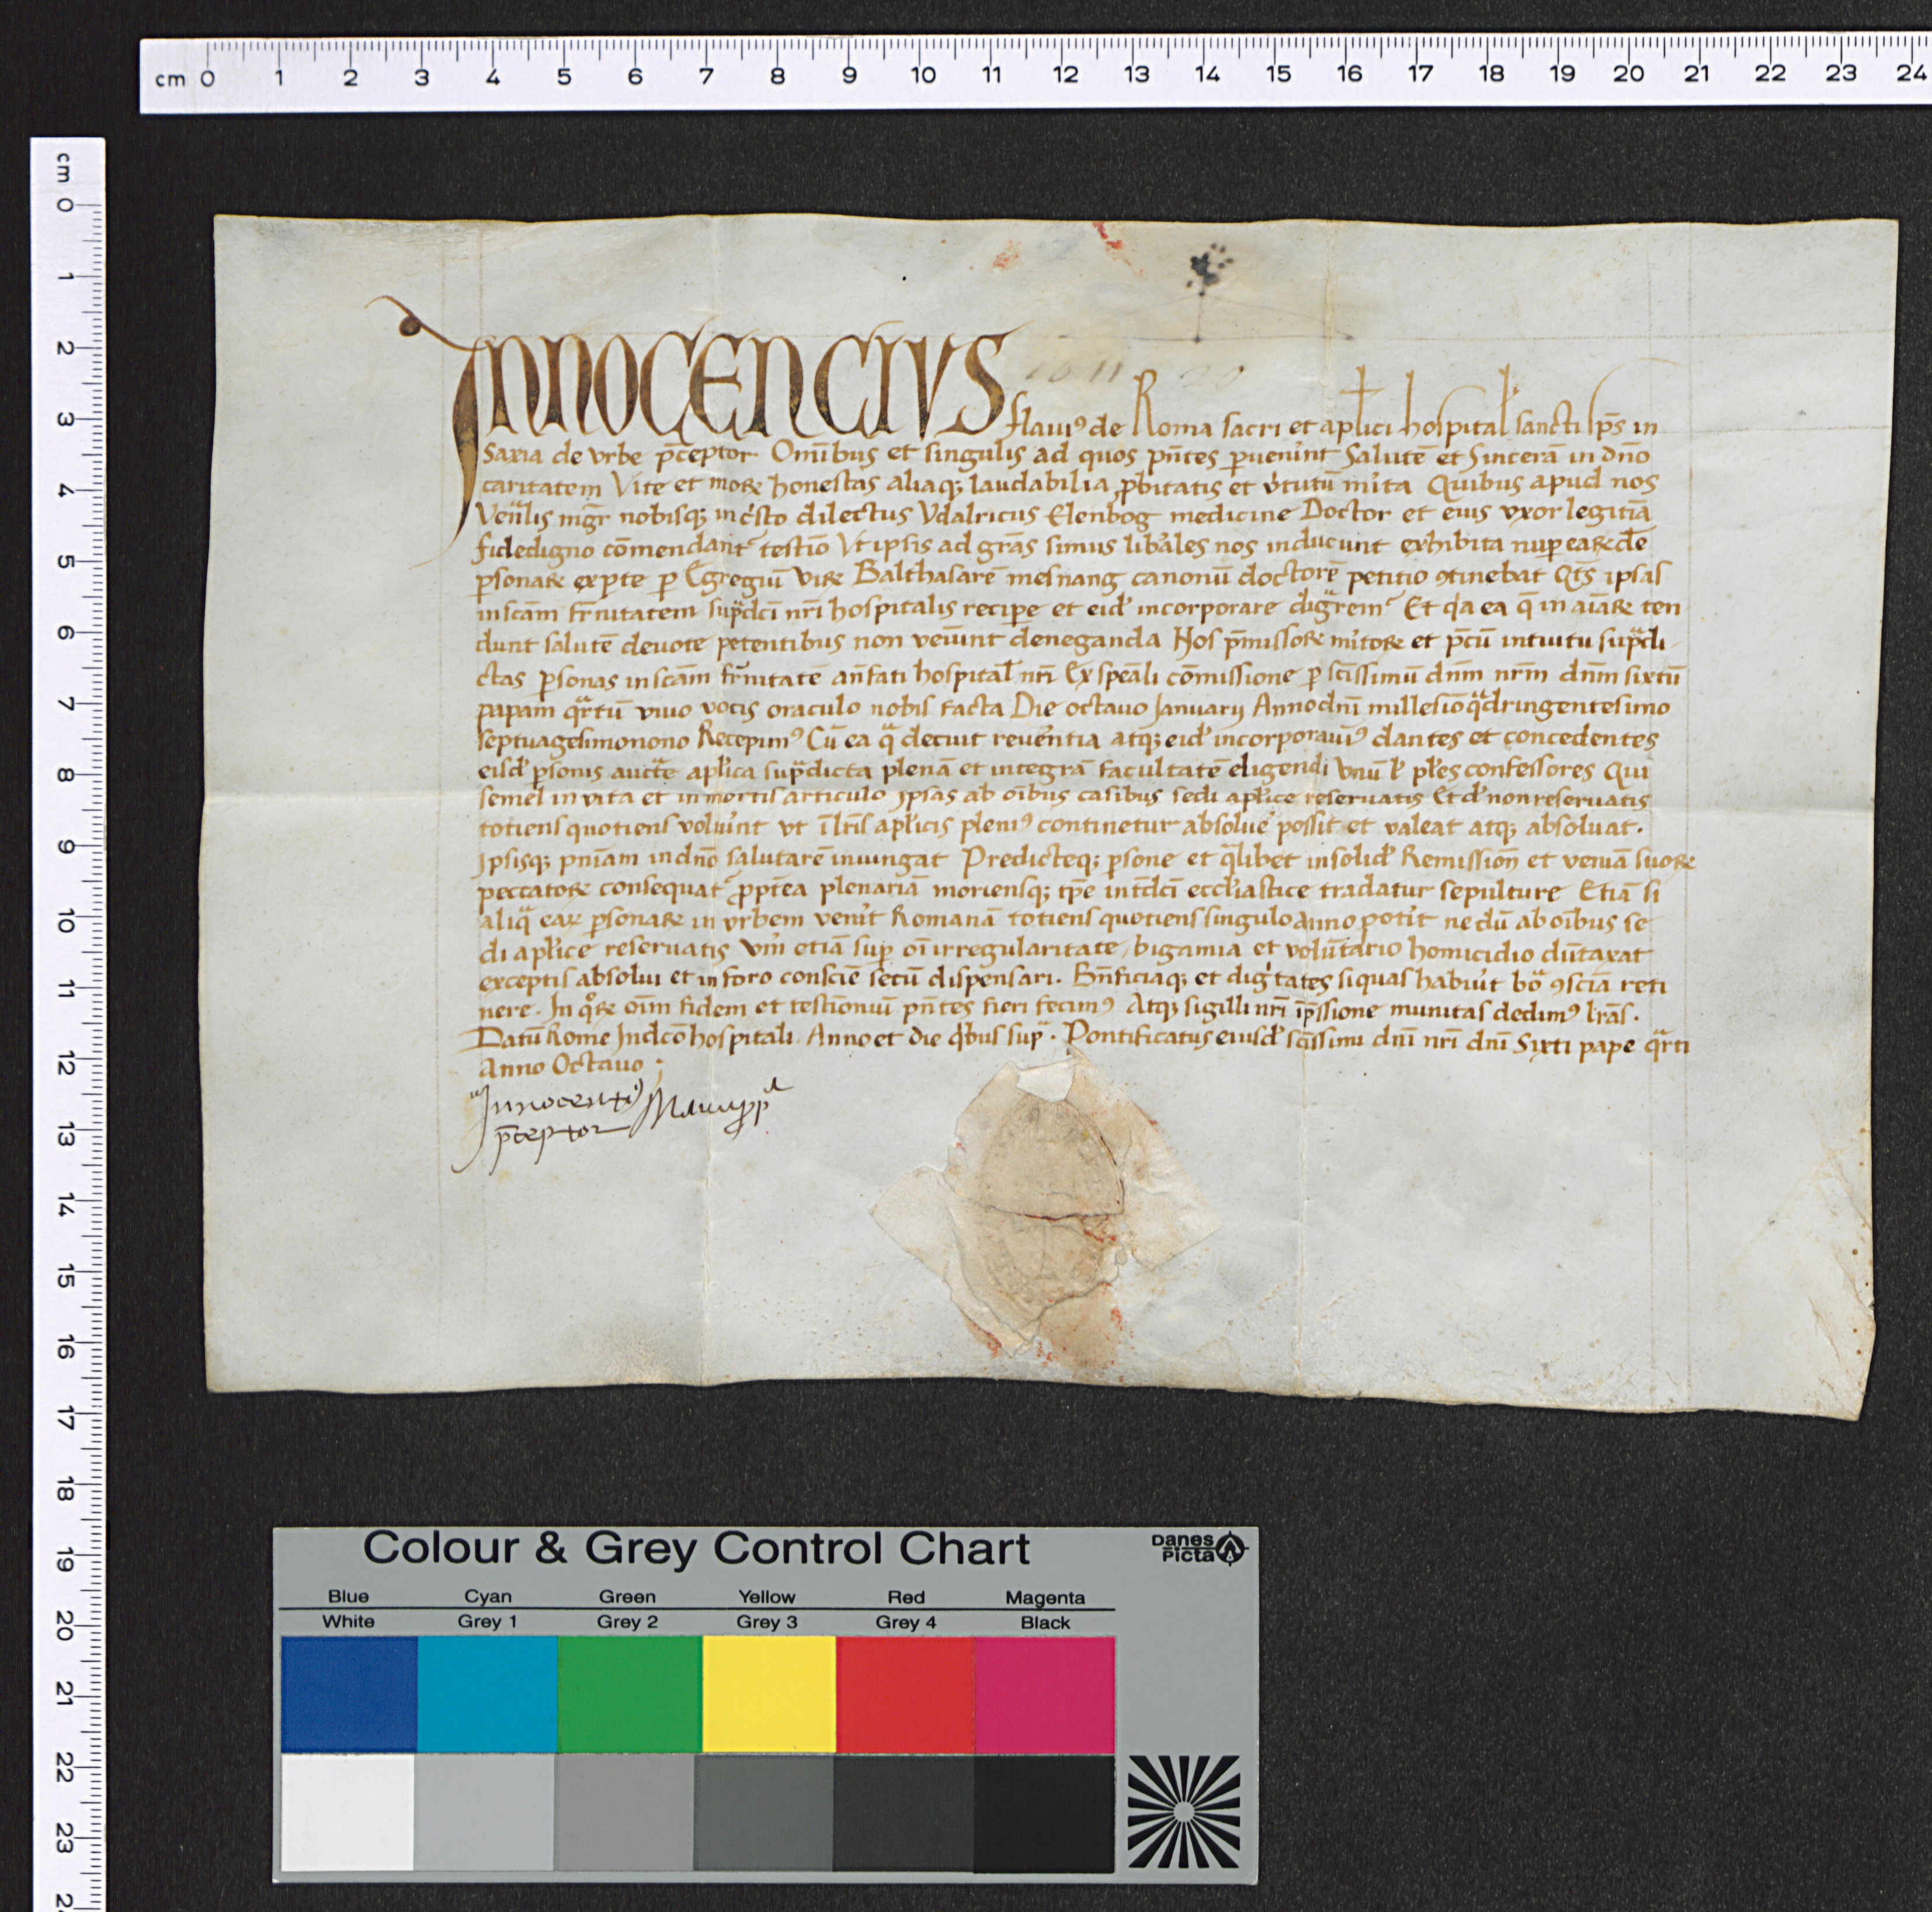 cm 0 1 2 3 4 5 6 7 8 9 10 11 12 13 14 15 16 17 18 19 20 21 22 23 24
cm 0 1 2 3 4 5 6 7 8 9 10 11 12 13 14 15 16 17 18 19 20 21 22 23
INNOCENCIVS flauiꝰ de Roma sacri et apl̓ici hospital̓ sancti sp̄s in
Saxia de vrbe p̄ceptor Om̄ibus et singulis ad quos pn̄tes ꝑuen̓int Salutē et Sincerā in dn̄o
caritatem Vite et moꝝ honestas aliaqꝫ laudabilia ꝓbitatis et v̓tutū m̓ita Quibus apud nos
Ven̓lis mgr̄ nobisqꝫ in cr̓sto dilectus Vdalricus Elenbog medicine Doctor et eius vxor legitīa
fidedigno cōmendant᷑ testīo Vt ipsis ad grās simus lib̓ales nos inducunt exhibita nuꝑ eaꝝdē
ꝑsonaꝝ ex ꝑte ꝑ Egregiū Viꝝ Balthasarē mesnang canonū doctorē petitio ꝯtinebat Qt̄s ipsas
in scām fr̄nitatem supͣdcī nr̄i hospitalis reciꝑe et eid̓ incorporare digͣrem᷑ Et qͥa ea q̄ in aīaꝝ ten
dunt salutē deuote petentibus non veniūnt deneganda Nos p̄missoꝝ m̓itoꝝ et p̄cū intuitu supͣdi
ctas ꝑsonas in scām fr̄nitatē an̄fati hospital̓ nr̄i Ex speāli cōmissione ꝑ scīssimū dnm̄ nrm̄ dnm̄ sixtū
papam qͣrtū viuo vocis oraculo nobis facta Die octauo Januarij Anno dnī millesīo qͣdringentesimo
septuagesimonono Recepimꝰ Cū ea qͣ decuit reuen̓tia atqꝫ eid̓ incorporauīꝰ dantes et concedentes
eisd̓ ꝑsonis auctͣte apl̓ica supͣdicta plenā et integrā facultatē eligendi Vnū l̓ pl̓es confessores Qui
semel in vita et in mortis articulo ipsas ab oībus casibus sedi apl̓ice reseruatis Et d̓ non reseruatis
totiens quotiens volu̓int vt ī lr̄is apl̓icis pleniꝰ continetur absolue̓ possit et valeat atqꝫ absoluat.
Ipsisqꝫ pnīam in dn̄o salutarē iniungat Predicteqꝫ ꝑsone et qͣlibet in solid̓ Remission̄ et veniā suoꝝ
peccatoꝝ consequat᷑ ꝓpt̄ea plenariā moriensqꝫ tꝑe int̄dcī eccl̓iastice tradatur sepulture Etiā si
aliqͣ eaꝝ ꝑsonaꝝ in vrbem ven̓it Romanā totiens quotiens singulo anno pot̓it nedū ab oībus se
di apl̓ice reseruatis Vm̓ etiā suꝑ oī irregularitate, bigamia et volūtario homicidio dūtaxat
exceptis absolui et in foro consciē secū dispensari. Bn̄ficiaqꝫ et digͥtates si quas habu̓it boͣ ꝯsciā reti
nere. In qͦꝝ oīm fidem et testīoniū pn̄tes fieri fecimꝰ Atqꝫ sigilli nr̄i īp̄ssione munitas dedimꝰ lr̄as.
Datū Rome In dcō hospitali. Anno et die qͥbus supͣ. Pontificatus eiusd̓ scīssimi dnī nr̄i dnī Sixti pape qͣrti
Anno Octauo;
Innocentiꝰ
p̄ceptor
Colour & Grey Control Chart
Danes Picta
Blue Cyan Green Yellow Red Magenta
White Grey 1 Grey 2 Grey 3 Grey 4 Black